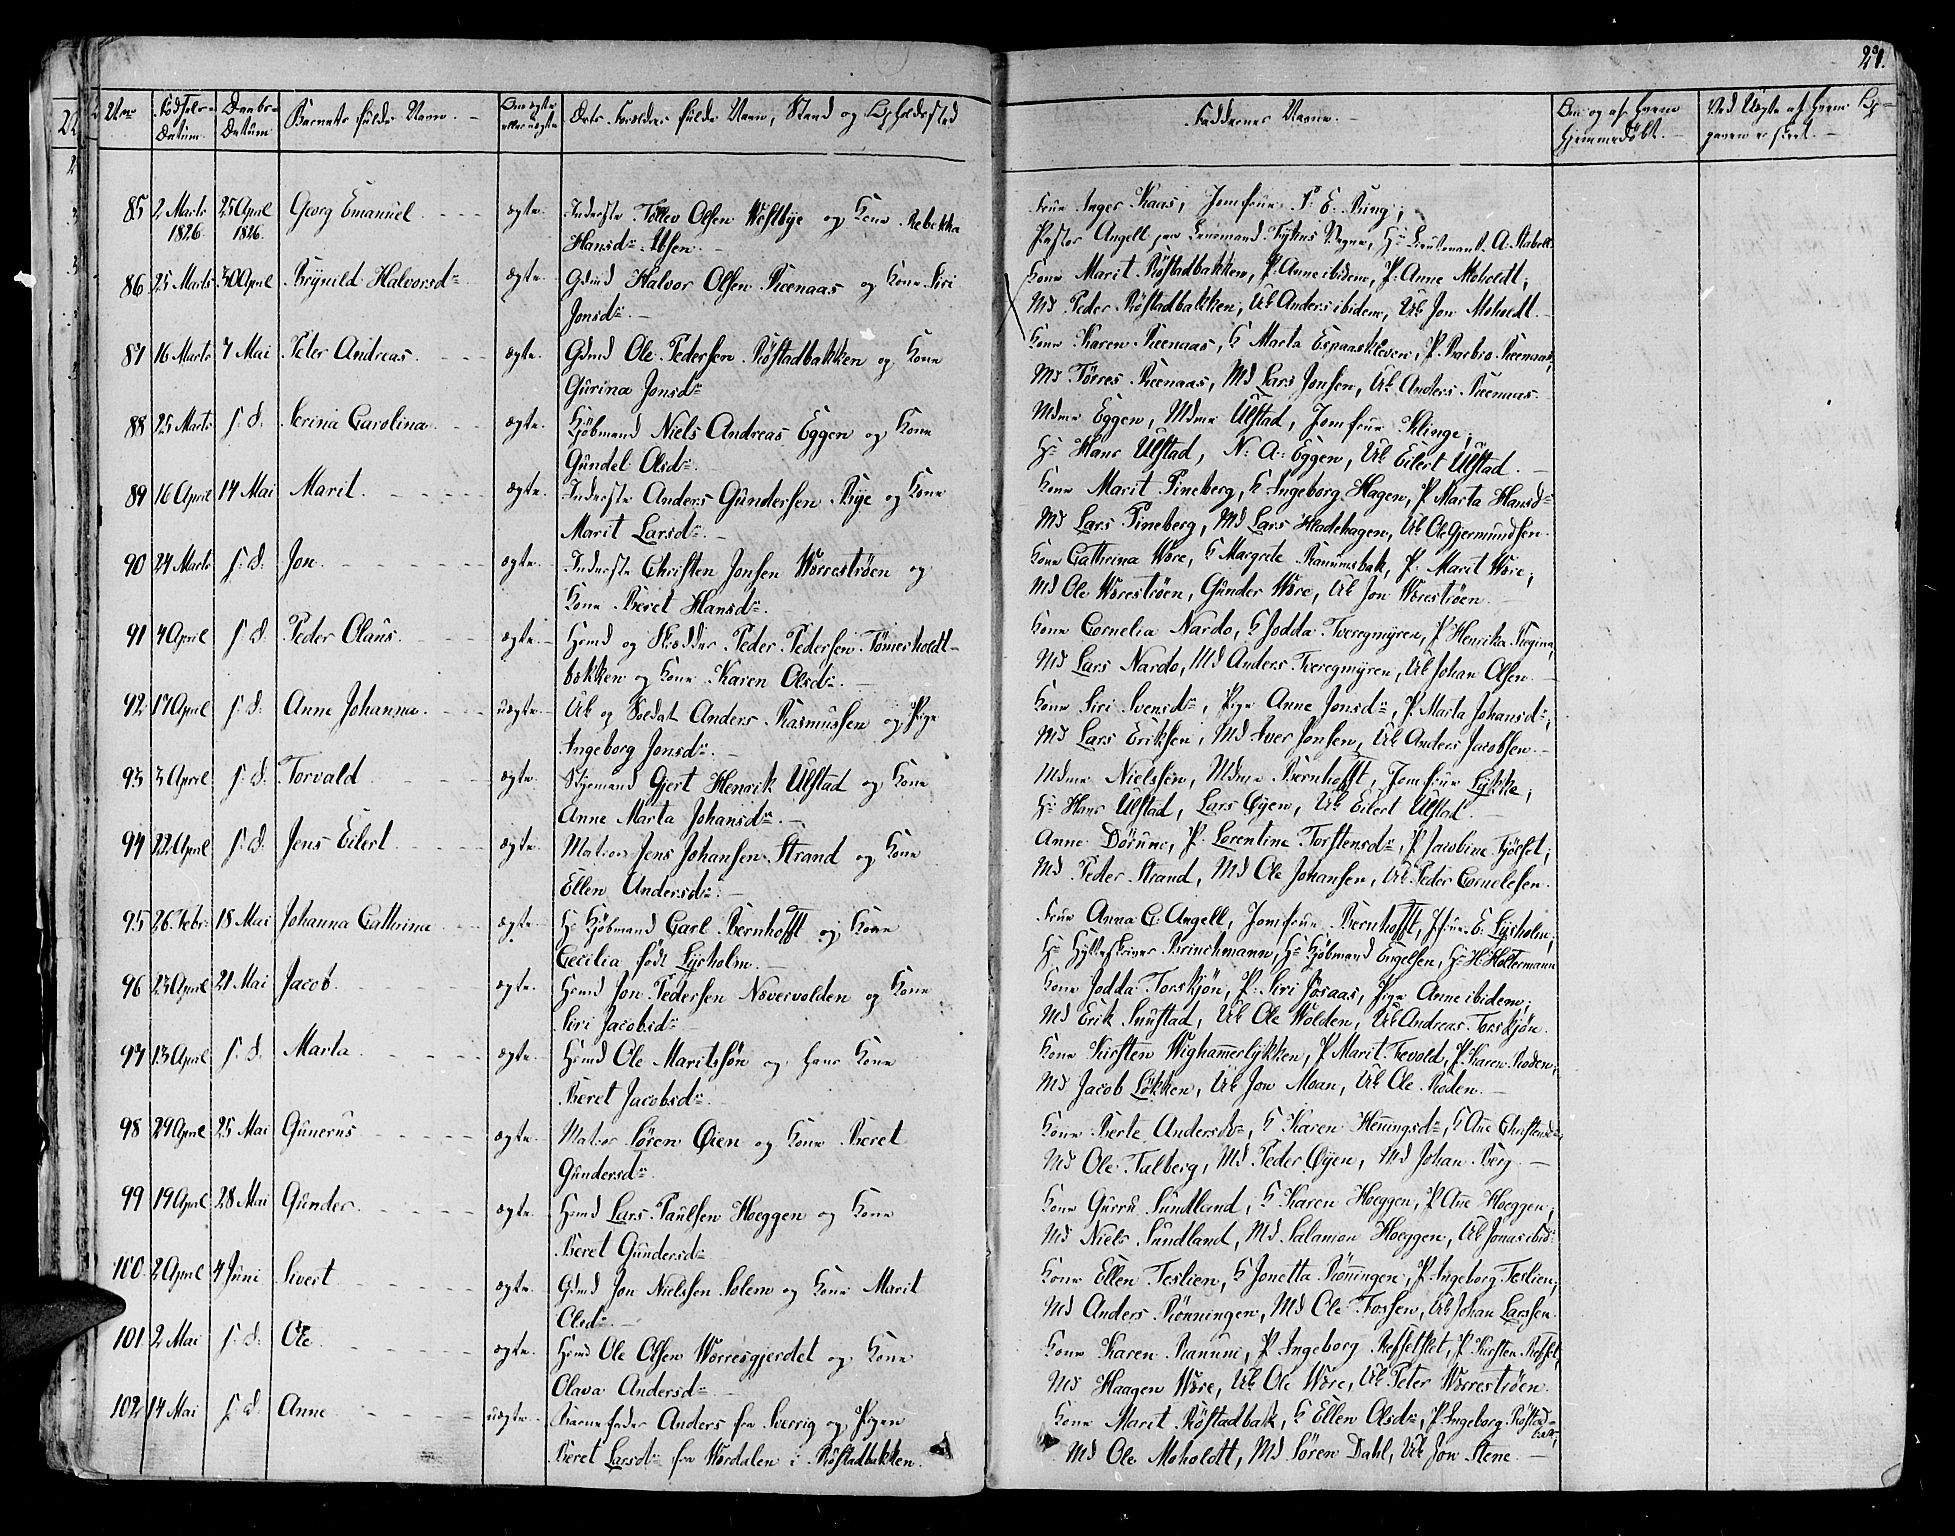 21.
Nro Fødsels- Datum. Daabs- Datum Barnets fulde Navn. Om ægte eller uægte Dets Forældres fulde Navn, Stand og Opholdssted
Faddernes Navne. Om og af hvem hjemmedøbt. Ved Uægte af hvem
85 2 Marts 1826. 25 April 1826. Georg Emanuel ægte. Inderste Tollev Olsen Westbye og Kone Rebekka
Hansdr Ibsen.
Frue Inger Kaas, Jomfrue P. E. Bing;
Pastor Angell paa Lensmand Vegne, Hr Lieutenant A.
86 25 Marts 30 April Brynild Halvorsdr ægte. Gdmd Halvor Olsen Reenaas og Kone Siri
Jonsdr.
Kone Marit Røstadbakken, P. Anne ibidem, P. Anne Moholdt;
Md Peder Røstadbakken, Uk Anders ibidem, Uk Jon Moholdt.
87 16 Marts 7 Mai Peter Andreas. ægte. Gdmd Ole Pedersen Røstadbakken og Kone
Gurina Jonsdr
Kone Karen Reenaas, K Marta Espaaskleven, P. Barbro Reenaas,
Md Tørres Reenaas, Md Lars Jonsen, Uk Anders Reenaas.
88 25 Marts s. d. Serina Carolina ægte. Kjöbmand Niels Andreas Eggen og Kone
Gundel Olsdr.
Mdme Eggen, Mdme Ulstad, Jomfrue Klinge;
Hr Hans Ulstad, N. A. Eggen, Uk Eilert Ulstad.
89 16 April 14 Mai Marit. ægte. Inderste Anders Gundersen Rye og Kone
Marit Larsdr.
Kone Marit Pineberg, K Ingeborg Hagen, P Marta Hansdr
Md Lars Pineberg, Md Lars Hladehagen, Uk Ole Gjermundsen.
90 24 Marts s. d. Jon. ægte. Inderste Christen Jonsen Worrestrøen og
Kone Beret Hansdr.
Kone Cathrina Wøre, K Margrete Ranumsbak, P. Marit Wøre;
Md Ole Worestrøen, Gunder Wøre, Uk Jon Worestrøen.
91 4 April s. d. Peder Olaus. ægte. Hsmd og Skrædder Peder Pedersen Tømerholdt-
bakken og Kone Karen Olsdr.
Kone Cornelia Nardo, K Jodda Tveregmyren, P Henrika Regina,
Md Lars Nardo, Md Anders Tveregmyren, Uk Johan Olsen.
92 17 April s. d. Anne Johanna. uægte. Uk og Soldat Anders Rasmussen og Pige
Ingeborg Jonsdr.
Kone Siri Svensdr, Pige Anne Jonsdr, P. Marta Johansdr,
Md Lars Eriksen, Md Iver Jonsen, Uk Anders Jacobsen.
93 3 April s. d. Torvald ægte. Styrmand Gjert Henrik Ulstad og Kone
Anne Marta Johansdr.
Mdme Nielsen, Mdme Bernhofft, Jomfrue Lykke;
Hr Hans Ulstad, Lars Øyen, Uk Eilert Ulstad.
94 22 April s. d. Jens Eilert ægte. Matros Jens Johansen Strand og Kone
Ellen Andersdr.
Anne Dørum, P. Lorentine Torstensdr, P Jacobine;
Md Peder Strand, Md Ole Johansen, Uk Peder Cornelesen.
95 26 Febr: 18 Mai Johanna Cathrina ægte. Hr Kjöbmand Carl Bernhofft og Kone
Cecilia født Lysholm.
Frue Anna C. Angell, Jomfrue Bernhofft, Jfrue E. Lysholm;
Hr Hytteskriver Brinchmann, Hr Kjöbmand Engelsen, Hr H. Holtermann
96 23 April 21 Mai Jacob. ægte. Hsmd Jon Pedersen Nøvervolden og Kone
Siri Jacobsdr
Kone Jodda Torskjön, P. Siri Josaas, Pige Anne ibidem;
Md Erik Snustad, Uk Ole Wolden, Uk Andreas Torskjön.
97 13 April s. d. Marta ægte. Hsmd Ole Maritssøn og hans Kone
Beret Jacobsdr.
Kone Kirsten Wighamerlykken, P Marit Tevold, P. Karen Roden,
Md Jacob Løkken, Uk Jon Moan, Uk Ole Roden.
98 29 April 25 Mai Gunerus ægte. Matros Søren Øien og Kone Beret
Gundersdr.
Kone Berte Andersdr, K Karen Henningsdr, K Ane Christensdr,
Md Ole Talberg, Md Peder Øyen, Md Johan Berg.
99 19 April 28 Mai Gunder ægte. Hsmd Lars Paulsen Hoeggen og Kone
Beret Gundersdr
Kone Gurru Sundland, K Karen Hoeggen, P Ane Hoeggen;
Md Niels Sundland, Md Salamon Hoeggen, Uk Jonas ibid.
100 2 April 4 Juni Sivert ægte. Gdmd Jon Nielssen Solem og Kone Marit
Olsdr.
Kone Ellen Teslien, K Jonetta Rönningen, P. Ingeborg Teslien;
Md Anders Rönningen, Md Ole Fossen, Uk Johan Larssen.
101 2 Mai s. d. Ole ægte. Hsmd Ole Olsen Worresgjerdet og Kone
Olava Andersdr
Kone Karen Ranum, P Ingeborg, P. Kirsten
Md Haagen Wøre, Uk Ole Wøre, Uk Peter Worrestrøen.
102 14 Mai s. d. Anne uægte. Barnefader Anders fra Sverrig og Pigen
Beret Larsdr fra Wærdalen i Røstadbakken.
Kone Marit Røstadbak, K Ellen Olsdr, P. Ingeborg Røstad-
bak,
Md Ole Moholdt, Md Sören Dahl, Uk Jon Stene.